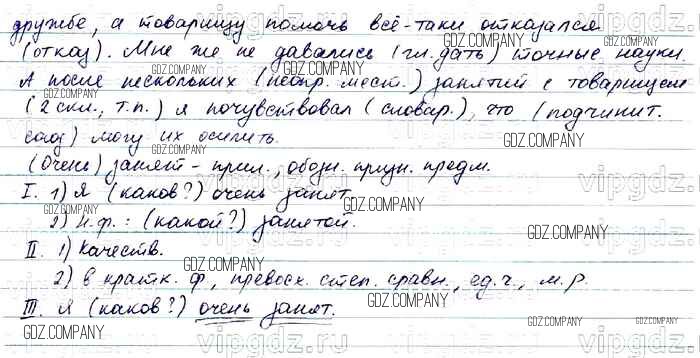 дружбе, а товарищу помочь всё-таки отказался
(отказ). Мне же не давались (гл. дать) точные науки.
А после нескольких (неопр. мест.) занятий с товарищем
(2 скл., т.п.) я почувствовал (словар.), что (подчинит.
союз) могу их осилить.
(Очень) занят - прил., обозн. призн. предм.
I. 1) Я (каков?) очень занят.
2) Н.ф.: (какой?) занятой.
II. 1) Качеств.
2) В кратк. ф., превосх. степ. сравн., ед.ч., м.р.
III. Я (каков?) очень занят.
GDZ.COMPANY
vipgdz.ru